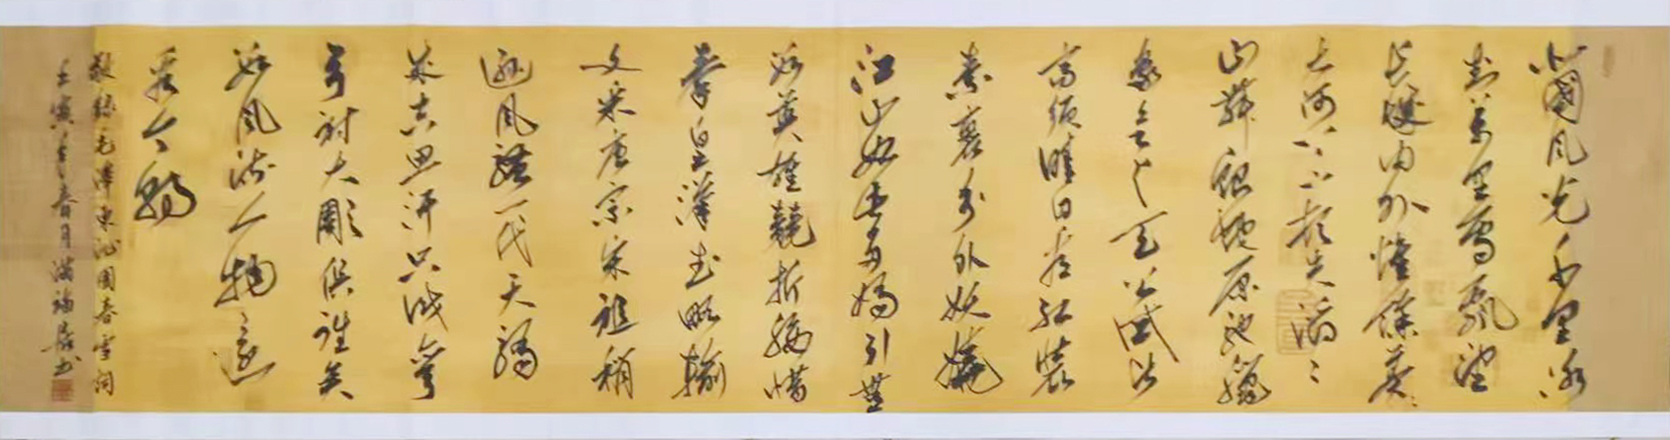 北國风光千里冰
封萬里雪飘望
长城内外惟馀莽々
大河上下顿失滔々
山舞银蛇原驰蠟
象欲与天公试比
高须晴日看红装
素裹分外妖娆
江山如此多娇引無
数英雄競折腰惜
秦皇漢武略输
文采唐宗宋祖稍
逊风骚一代天骄
成吉思汗只识弯
弓射大雕俱往矣
数风流人物还
看今朝
敬録毛澤东沁園春雪词
壬寅年春月满福居书